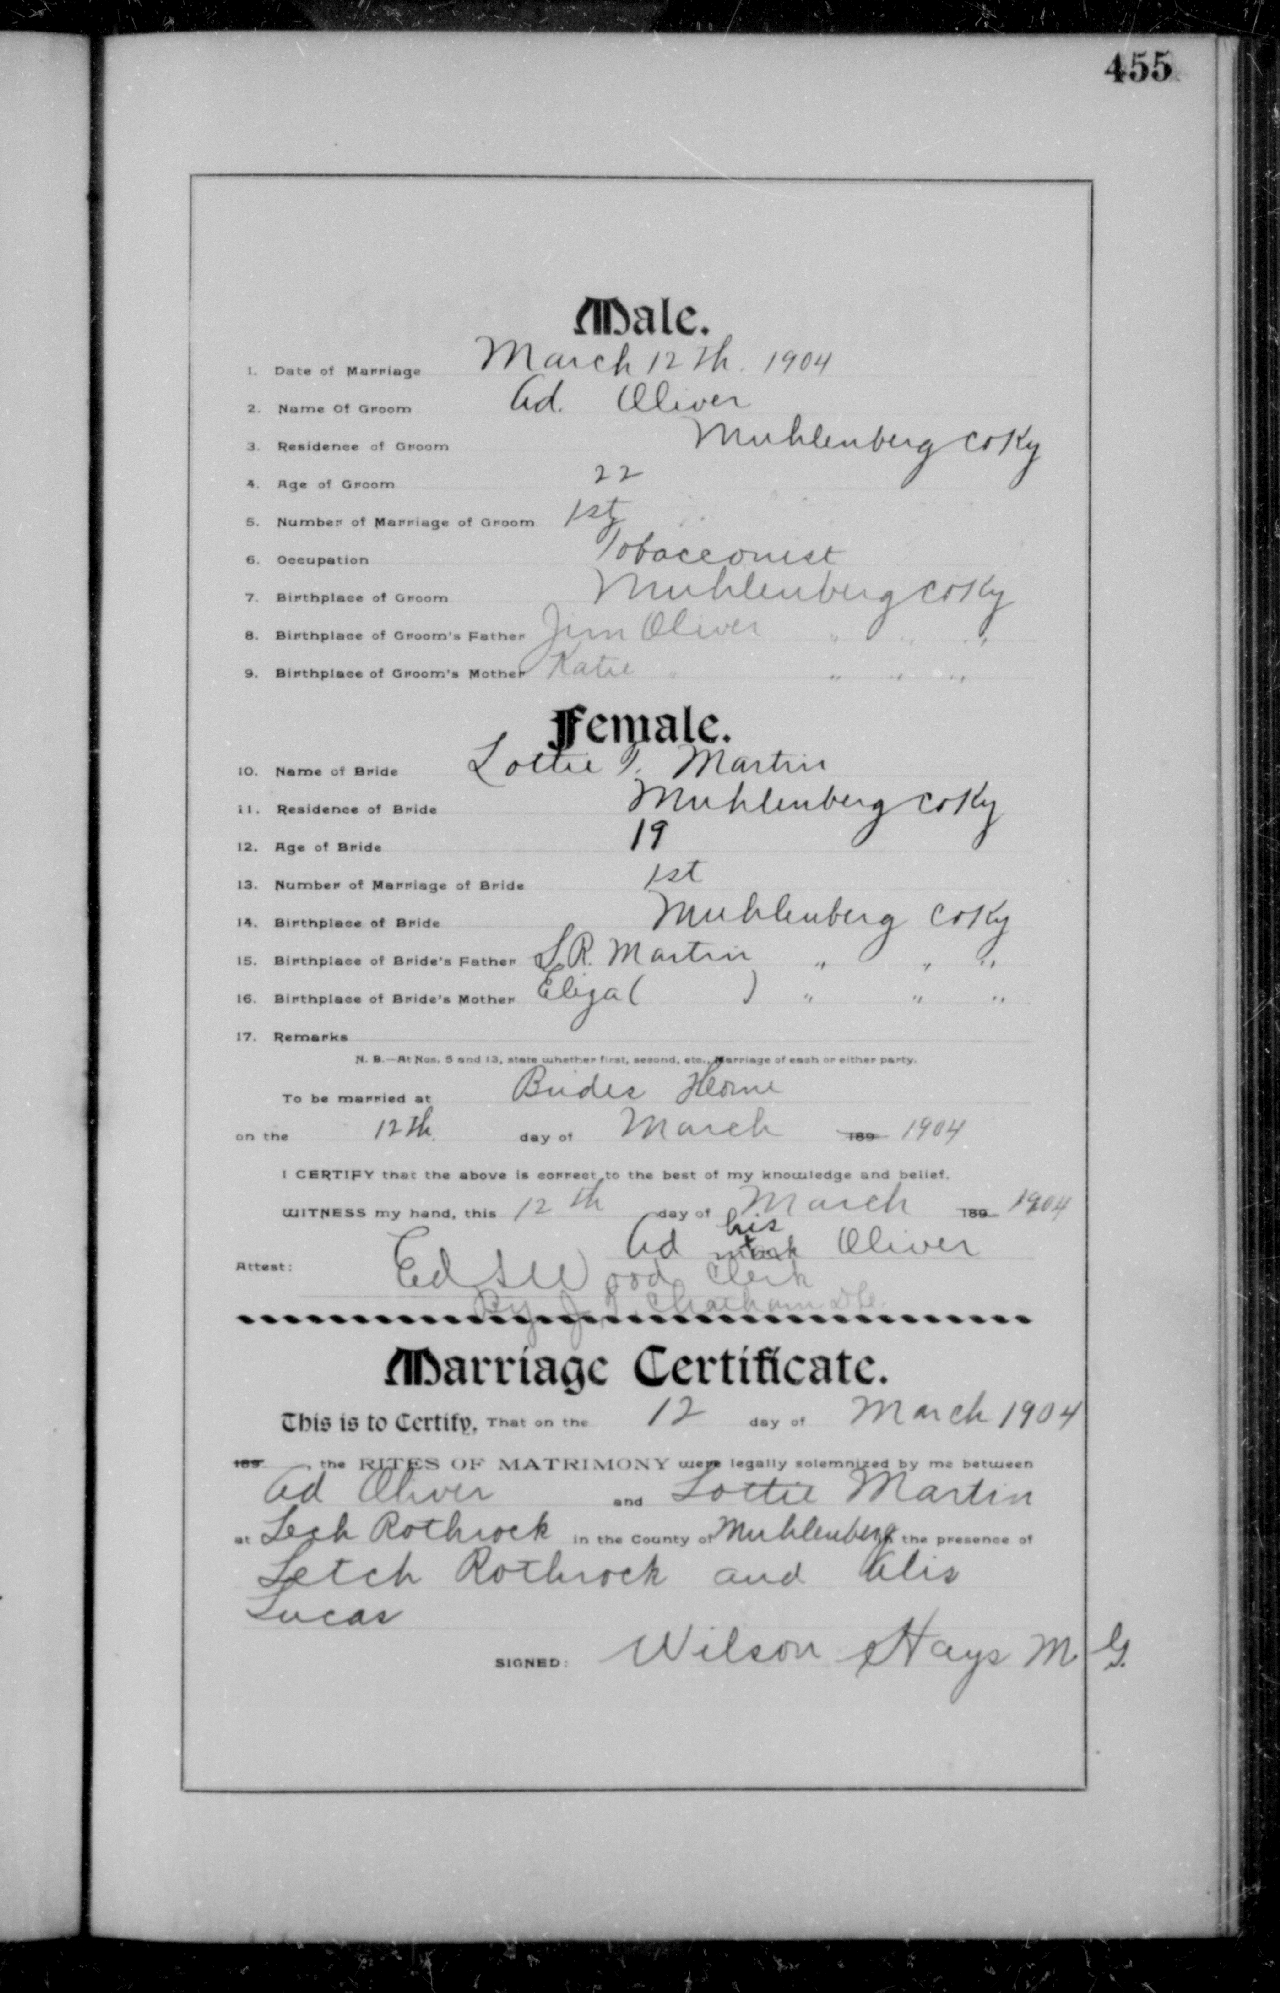 455
Male.
1. Date of Marriage March 12th. 1904
2. Name Of Groom Ad. Oliver
3. Residence of Groom Muhlenberg Co Ky
4. Age of Groom 22
5. Number of Marriage of Groom 1st
6. Occupation Tobacconist
7. Birthplace of Groom Muhlenberg Co Ky
8. Birthplace of Groom's Father Jim Oliver " " "
9. Birthplace of Groom's Mother Katie " " " "
Female.
10. Name of Bride Lottie T. Martin
11. Residence of Bride Muhlenberg Co Ky
12. Age of Bride 19
13. Number of Marriage of Bride 1st
14. Birthplace of Bride Muhlenberg Co Ky
15. Birthplace of Bride's Father S.R. Martin " " "
16. Birthplace of Bride's Mother Eliza ( ) " " "
17. Remarks
N. B.—At Nos. 5 and 13, state whether first, second, etc., Marriage of each or either party.
To be married at Brides Home
on the 12th. day of March 189 1904
I CERTIFY that the above is correct to the best of my knowledge and belief.
WITNESS my hand, this 12th day of March 189 1904
Ad his x mark Oliver
Attest: Ed S Wood Clerk
By J. T. Chatham D.C.
Marriage Certificate.
This is to Certify, That on the 12 day of March 1904
189 , the RITES OF MATRIMONY were legally solemnized by me between
Ad Oliver and Lottie Martin
at Lech Rothrock in the County of Muhlenberg in the presence of
Letch Rothrock and Alis
Lucas
SIGNED: Wilson Hays M. G.